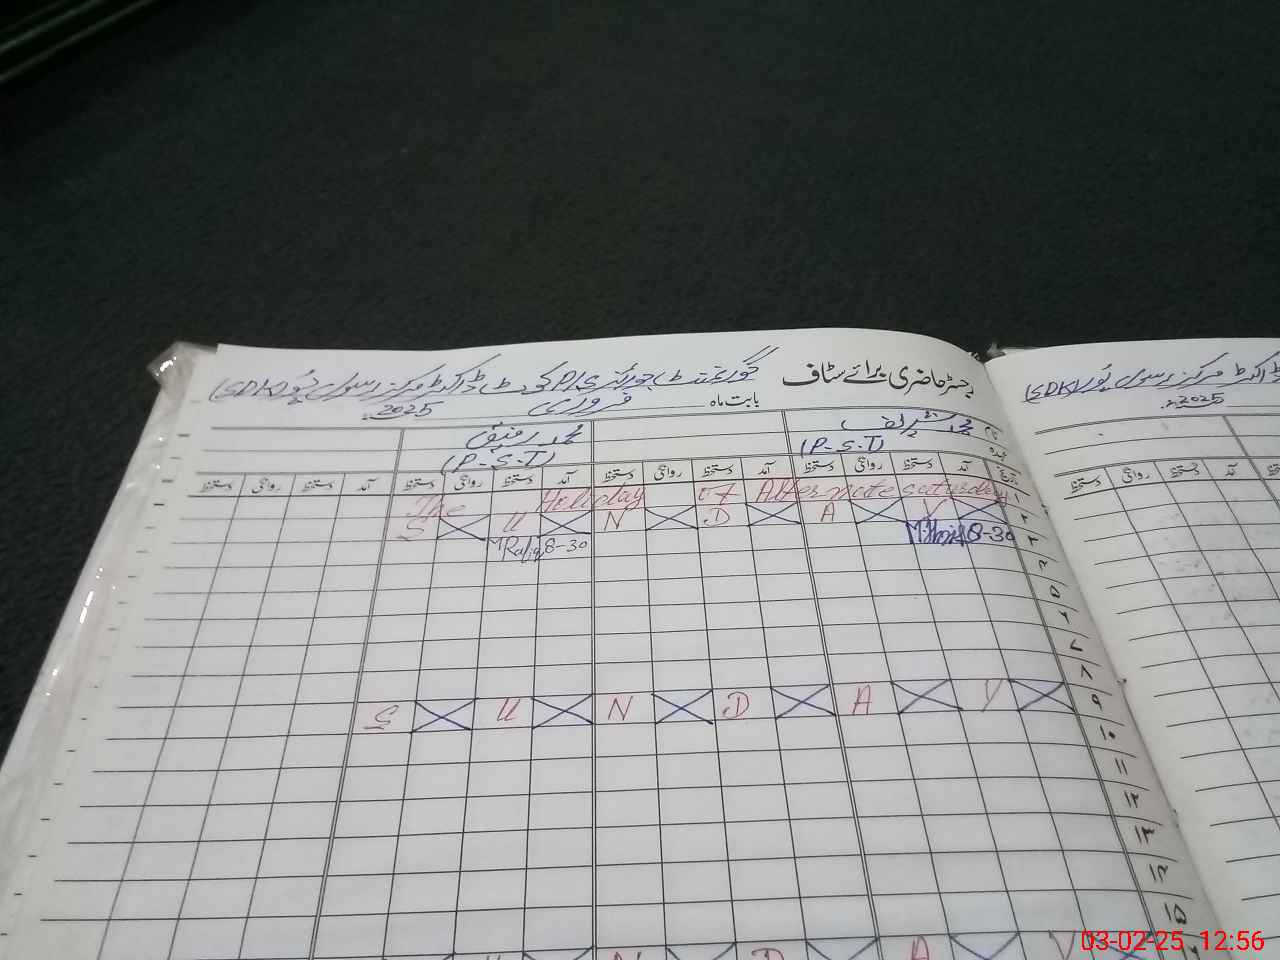 رجسٹر حاضری برائے سٹاف
گورنمنٹ بوائز P/S کوٹ ڈاکٹر مرکز رسول پور (SDK)
بابت ماہ فروری 2025ء
نام محمد شریف محمد رفیق
عہدہ (P-S-T) (P-S-T)
تاریخ آمد دستخط روانگی دستخط آمد دستخط روانگی دستخط آمد دستخط روانگی دستخط آمد دستخط روانگی دستخط
۱ The Holiday of Alternate saturday
۲ S U N D A Y
۳ 8-30 M Rafiq 8-30
۴
۵
۶
۷
۸
۹ S U N D A Y
۱۰
۱۱
۱۲
۱۳
۱۴
۱۵
N D A Y
ڈاکٹر مرکز رسول پور (SDK)
2025ء
آمد دستخط روانگی دستخط
03-02-25 12:56